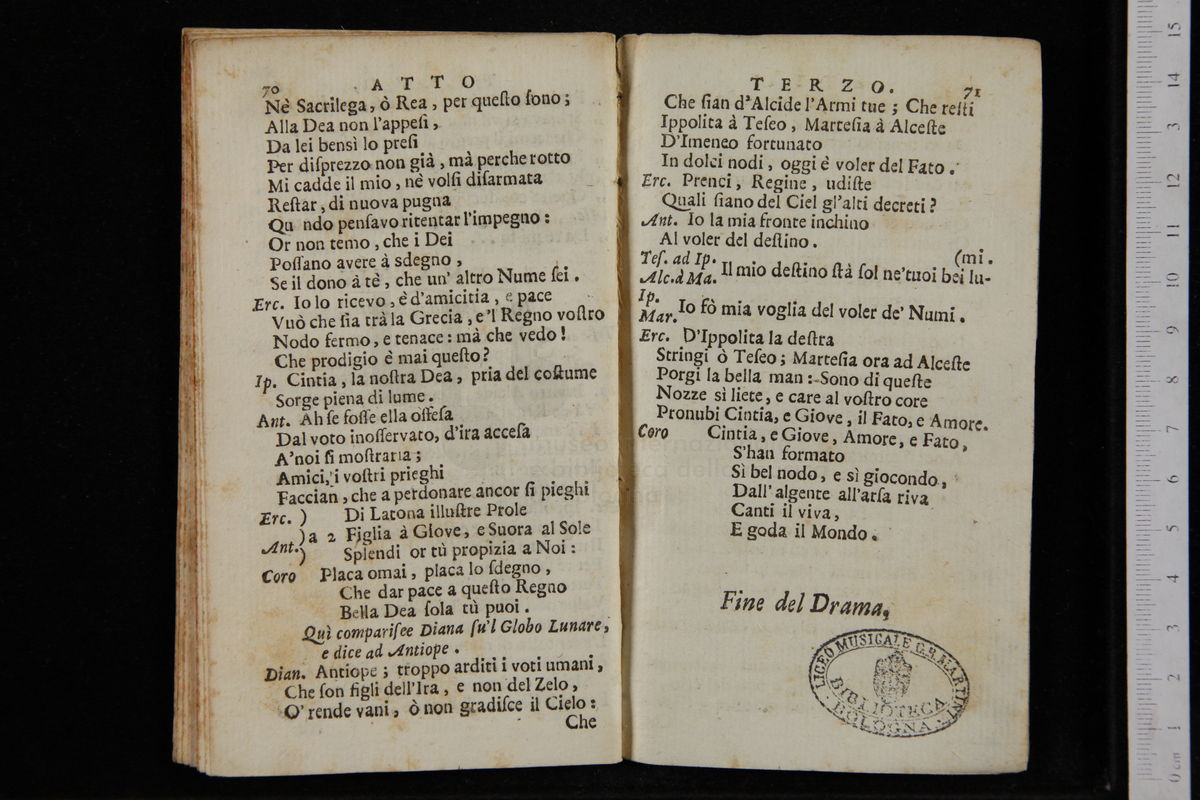 70 ATTO
Nè Sacrilega, ò Rea, per queſto ſono;
Alla Dea non l'appeſi,
Da lei bensì lo preſi
Per diſprezzo non già, mà perche rotto
Mi cadde il mio, nè volſi diſarmata
Reſtar, di nuova pugna
Qu ndo penſavo ritentar l'impegno:
Or non temo, che i Dei
Poſſano avere à sdegno,
Se il dono à tè, che un' altro Nume ſei.
Erc. Io lo ricevo, è d'amicitia, e pace
Vuò che ſia trà la Grecia, e'l Regno voſtro
Nodo fermo, e tenace: mà che vedo!
Che prodigio è mai queſto?
Ip. Cintia, la noſtra Dea, pria del coſtume
Sorge piena di lume.
Ant. Ah ſe foſſe ella offeſa
Dal voto inoſſervato, d'ira acceſa
A'noi ſi moſtraria;
Amici, i voſtri prieghi
Faccian, che a perdonare ancor ſi pieghi
Erc. ) Di Latona illuſtre Prole
)a 2 Figlia à Giove, e Suora al Sole
Ant.) Splendi or tù propizia a Noi:
Coro Placa omai, placa lo ſdegno,
Che dar pace a queſto Regno
Bella Dea ſola tù puoi.
Quì compariſee Diana ſu'l Globo Lunare,
e dice ad Antiope.
Dian. Antiope; troppo arditi i voti umani,
Che ſon figli dell'Ira, e non del Zelo,
O' rende vani, ò non gradiſce il Cielo:
Che
TERZO. 71
Che ſian d'Alcide l'Armi tue; Che reſti
Ippolita à Teſeo, Marteſia à Alceſte
D'Imeneo fortunato
In dolci nodi, oggi è voler del Fato.
Erc. Prenci, Regine, udiſte
Quali ſiano del Ciel gl'alti decreti?
Ant. Io la mia fronte inchino
Al voler del deſtino.
Teſ. ad Ip. (mi.
Alc.à Ma. Il mio deſtino ſtà ſol ne'tuoi bei lu-
Ip.
Mar. Io fò mia voglia del voler de' Numi.
Erc. D'Ippolita la deſtra
Stringi ò Teſeo; Marteſia ora ad Alceſte
Porgi la bella man: Sono di queſte
Nozze sì liete, e care al voſtro core
Pronubi Cintia, e Giove, il Fato, e Amore.
Coro Cintia, e Giove, Amore, e Fato,
S'han formato
Sì bel nodo, e sì giocondo,
Dall' algente all'arſa riva
Canti il viva,
E goda il Mondo.
Fine del Drama,
LICEO MUSICALE G.B. MARTINI
BIBLIOTECA
BOLOGNA